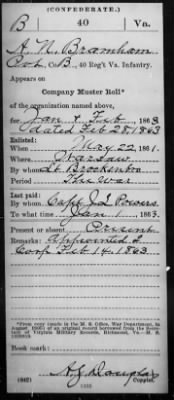 (CONFEDERATE.)
B 40 Va.
A. N. Bramham
Co. B., 40 Reg't Va. Infantry.
Appears on
Company Muster Roll*
of the organization named above,
for Jan & Feb, 1863
dated Feb 28, 1863
Enlisted:
When May 22, 1861.
Where Warsaw
By whom Lt Brockenbro
Period The War
Last paid:
By whom Capt J. L Powers
To what time Jan 1, 1863.
Present or absent Present
Remarks: Appointed
Corp Feb 14. 1863
*From copy (made in the M. S. Office, War Department, in
of an original record borrowed from the
of Virginia Military Records, Richmond, Va.
Book mark:
A J Douglas
(642) Copyist.